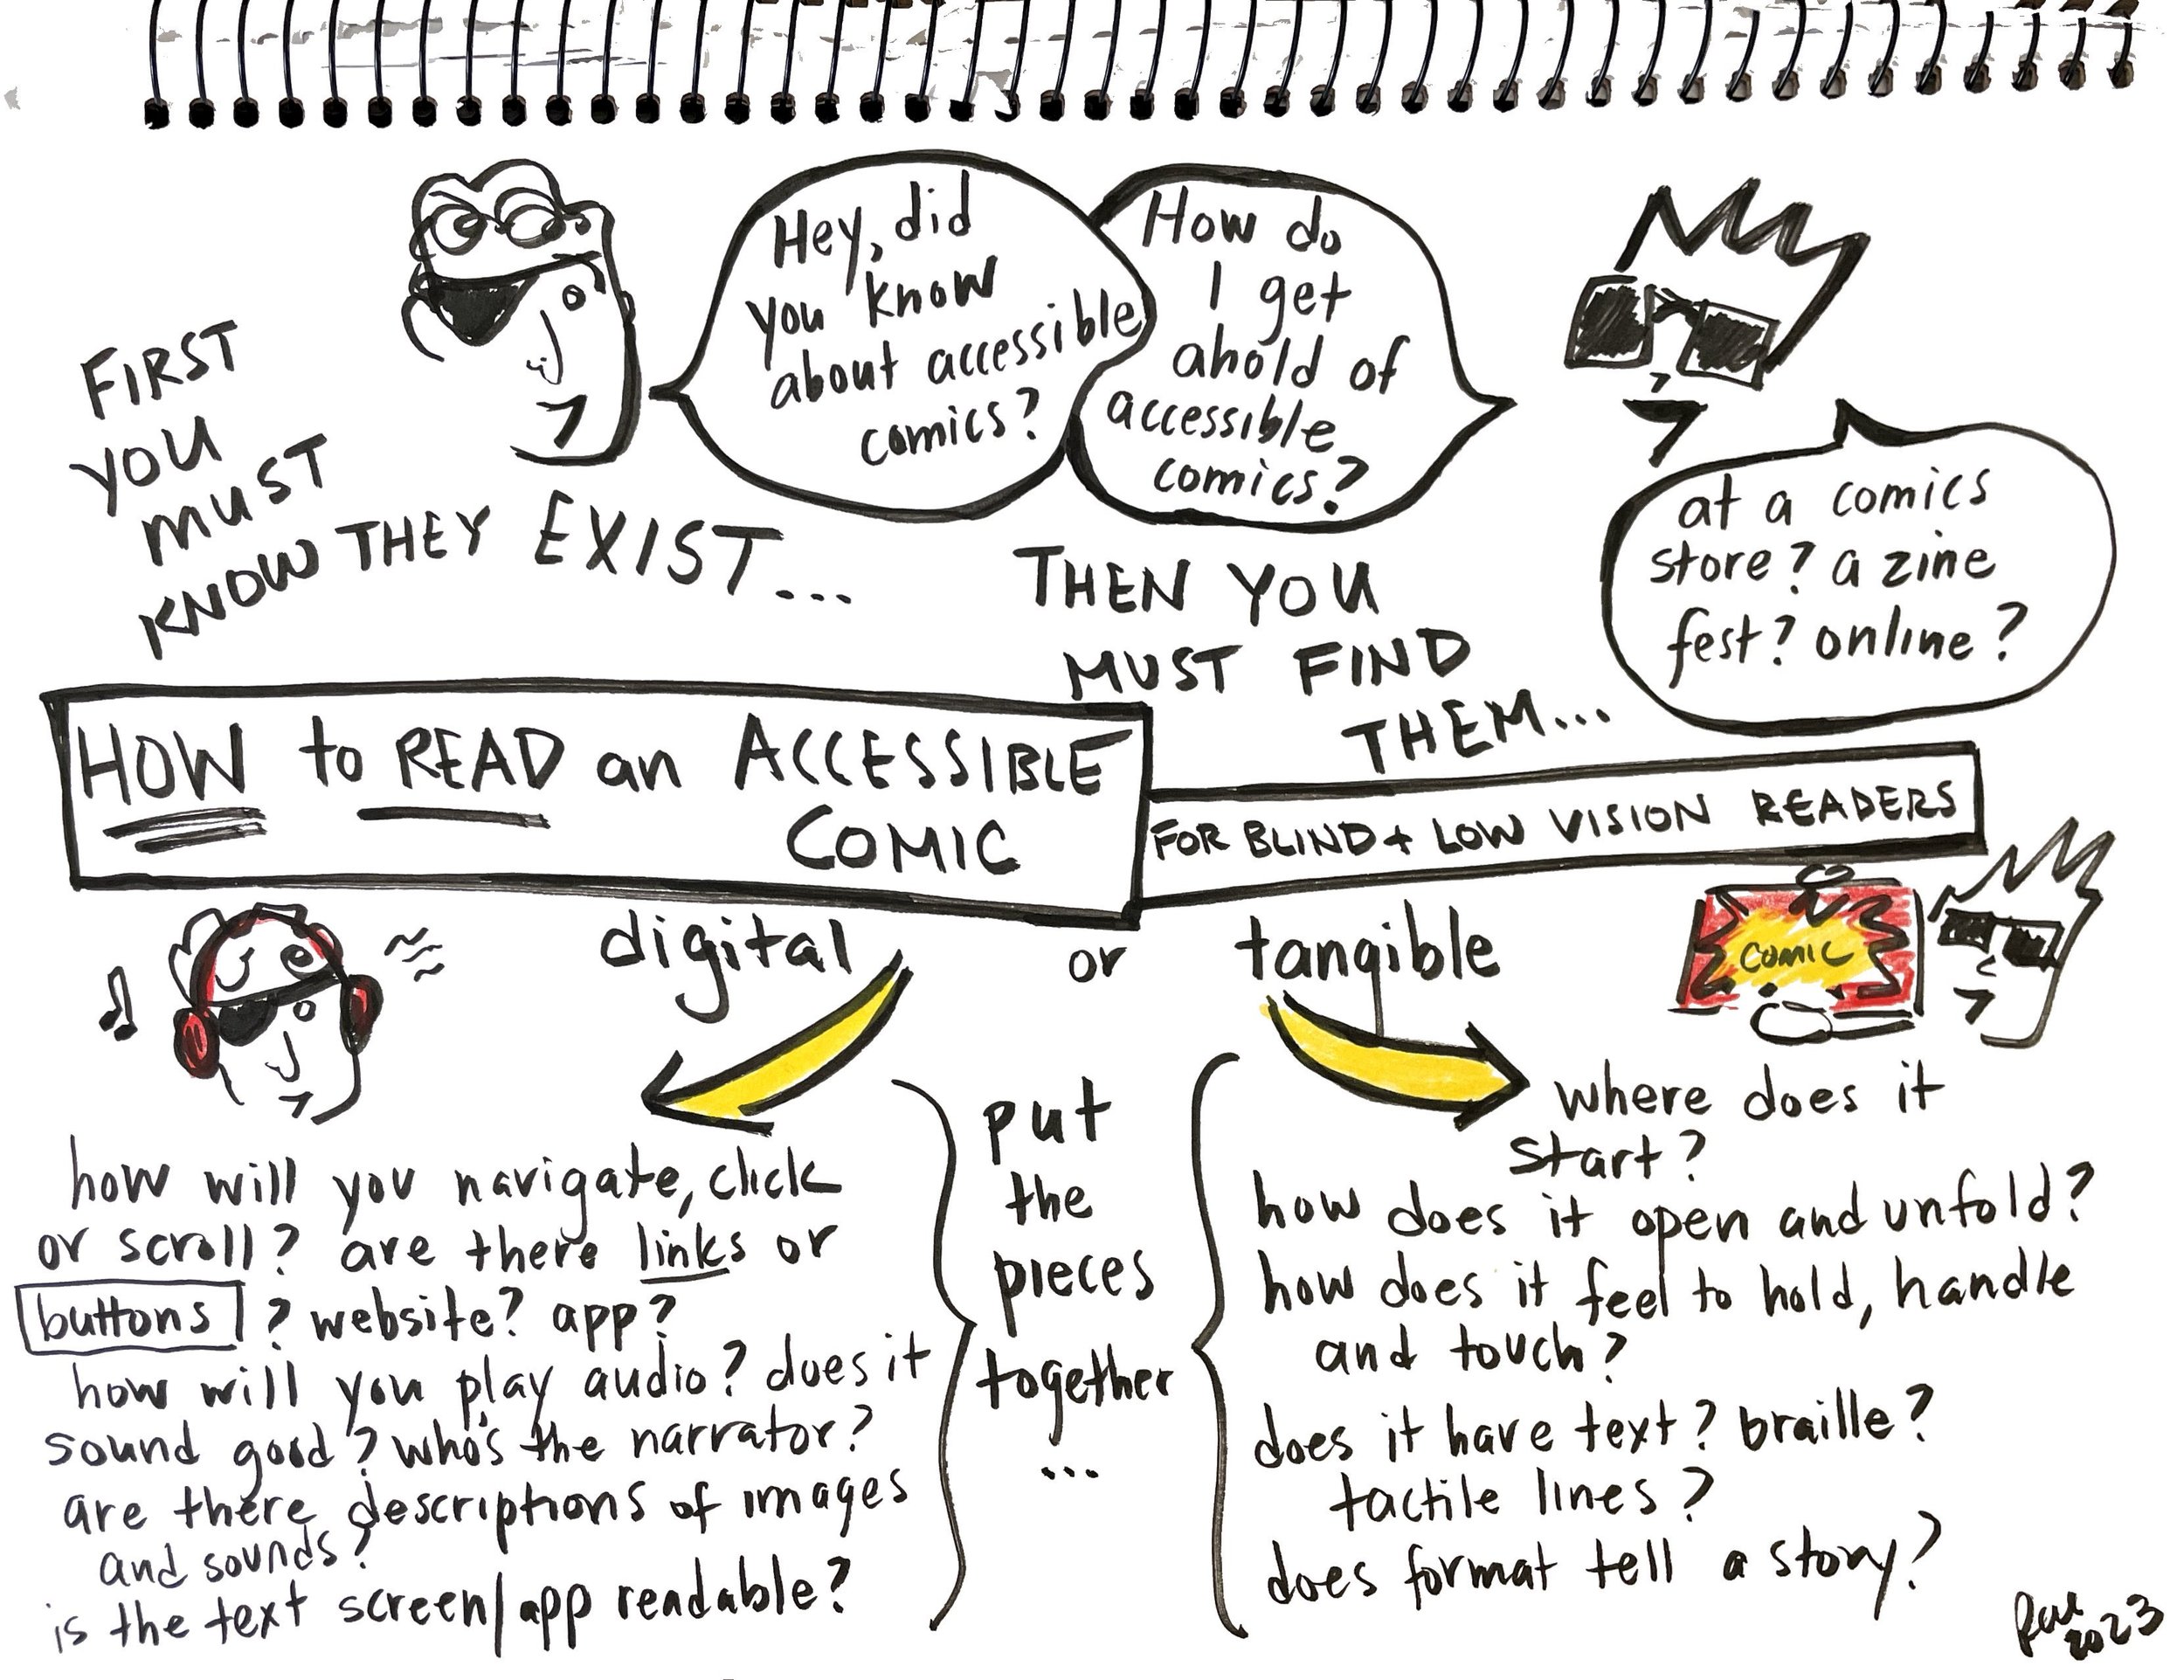 FIRST
YOU
MUST
KNOW THEY EXIST...
Hey, did
you know
about accessible
comics?
How do
I get
ahold of
accessible
comics?
at a comics
store? a zine
fest? online?
THEN YOU
MUST FIND
THEM...
HOW to READ an ACCESSIBLE
COMIC
FOR BLIND + LOW VISION READERS
digital or tangible
COMIC
how will you navigate, click
or scroll? are there links or
buttons? website? app?
how will you play audio? does it
sound good? who's the narrator?
are there descriptions of images
and sounds?
is the text screen/app readable?
put
the
pieces
together
...
where does it
start?
how does it open and unfold?
how does it feel to hold, handle
and touch?
does it have text? braille?
tactile lines?
does format tell a story?
2023